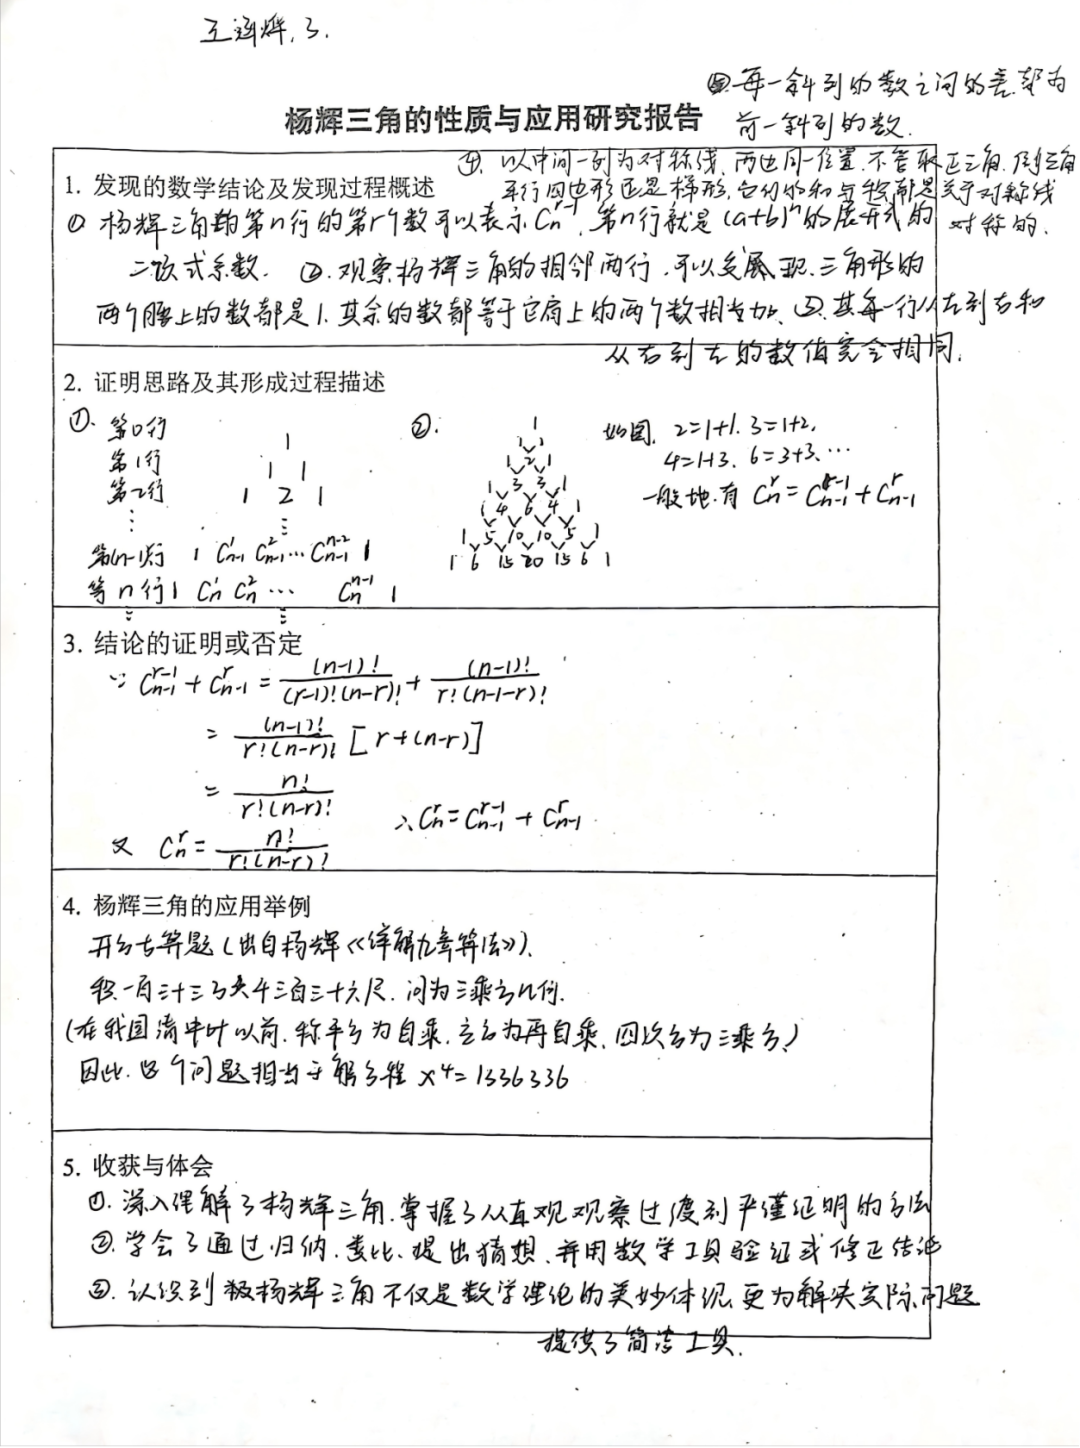 王 烨.3.
④每一斜列的数之间的差都为
前一斜列的数.
杨辉三角的性质与应用研究报告
④. 以中间一列为对称线,两边同一位置.不管取正三角.倒三角
平行四边形还是梯形,它们的和与积都是关于对称线
对称的.
1. 发现的数学结论及发现过程概述
① 杨辉三角的第n行的第r个数可以表示Cₙʳ⁻¹,第n行就是(a+b)ⁿ的展开式的
二项式系数. ②.观察杨辉三角的相邻两行,可以发展现.三角形的
两个腰上的数都是1.其余的数都等于它肩上的两个数相加、③.其每一行从左到右和
从右到左的数值完全相同.
2. 证明思路及其形成过程描述
①. 第0行 1
第1行 1 1
第2行 1 2 1
⋮ ⋮
第(n-1)行 1 Cₙ₋₁¹ Cₙ₋₁² … Cₙ₋₁ⁿ⁻² 1
第n行 1 Cₙ¹ Cₙ² … Cₙⁿ⁻¹ 1
⋮ ⋮
②. 1
1 1
1 2 1
1 3 3 1
1 4 6 4 1
1 5 10 10 5 1
1 6 15 20 15 6 1
如图, 2=1+1. 3=1+2,
4=1+3, 6=3+3,…
一般地.有 Cₙʳ=Cₙ₋₁ʳ⁻¹+Cₙ₋₁ʳ
3. 结论的证明或否定
∵ Cₙ₋₁ʳ⁻¹ + Cₙ₋₁ʳ = (n-1)!/(r-1)!(n-r)! + (n-1)!/r!(n-1-r)!
= (n-1)!/r!(n-r)! [r+(n-r)]
= n!/r!(n-r)!
又 Cₙʳ = n!/r!(n-r)! ∴ Cₙʳ=Cₙ₋₁ʳ⁻¹ + Cₙ₋₁ʳ
4. 杨辉三角的应用举例
开方古算题(出自杨辉《详解九章算法》).
积一百三十三万六千三百三十六尺.问为三乘方几何.
(在我国清中叶以前.称平方为自乘,立方为再自乘,四次方为三乘方)
因此.这个问题相当于解方程 x⁴=1336336
5. 收获与体会
①. 深入理解了杨辉三角.掌握了从直观观察过渡到严谨证明的方法
②. 学会了通过归纳.类比.提出猜想.并用数学工具验证或修正结论
③. 认识到杨辉三角不仅是数学理论的美妙体现.更为解决实际问题
提供了简洁工具.